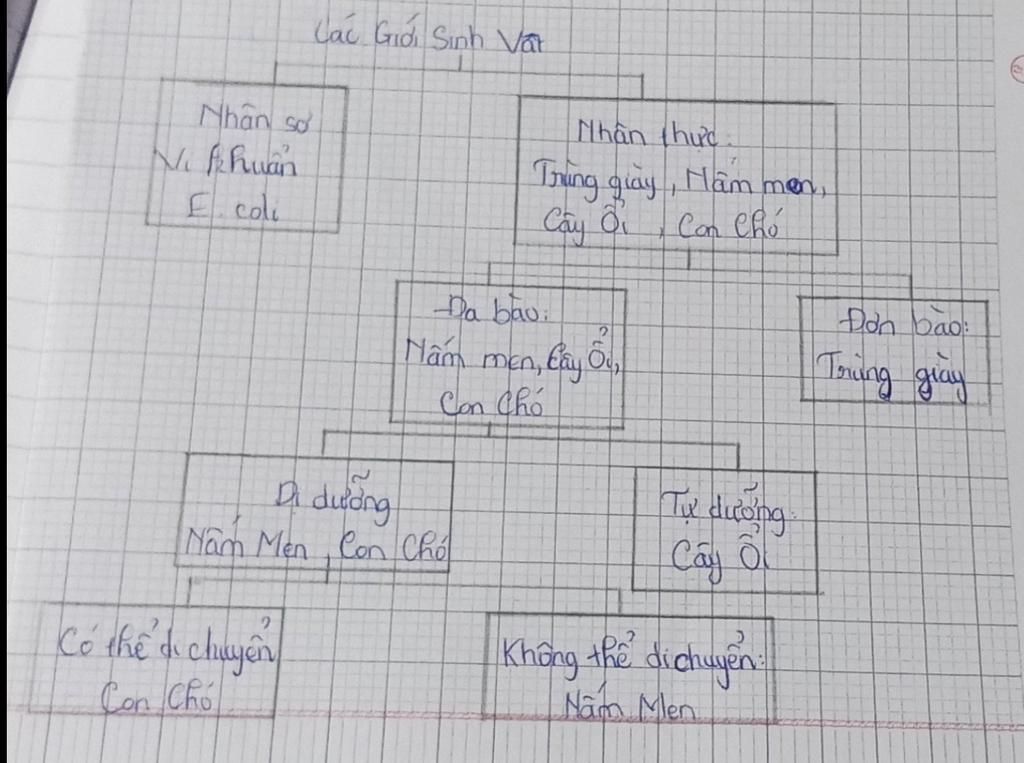 Các Giới Sinh Vật
Nhân sơ
Vi khuẩn
E. coli
Nhân thực:
Trùng giày, Nấm men,
Cây Ổi, Con Chó
Đa bào:
Nấm men, Cây Ổi,
Con Chó
Đơn bào:
Trùng giày
Dị dưỡng
Nấm Men, Con Chó
Tự dưỡng:
Cây Ổi
Có thể di chuyển
Con Chó
Không thể di chuyển:
Nấm Men